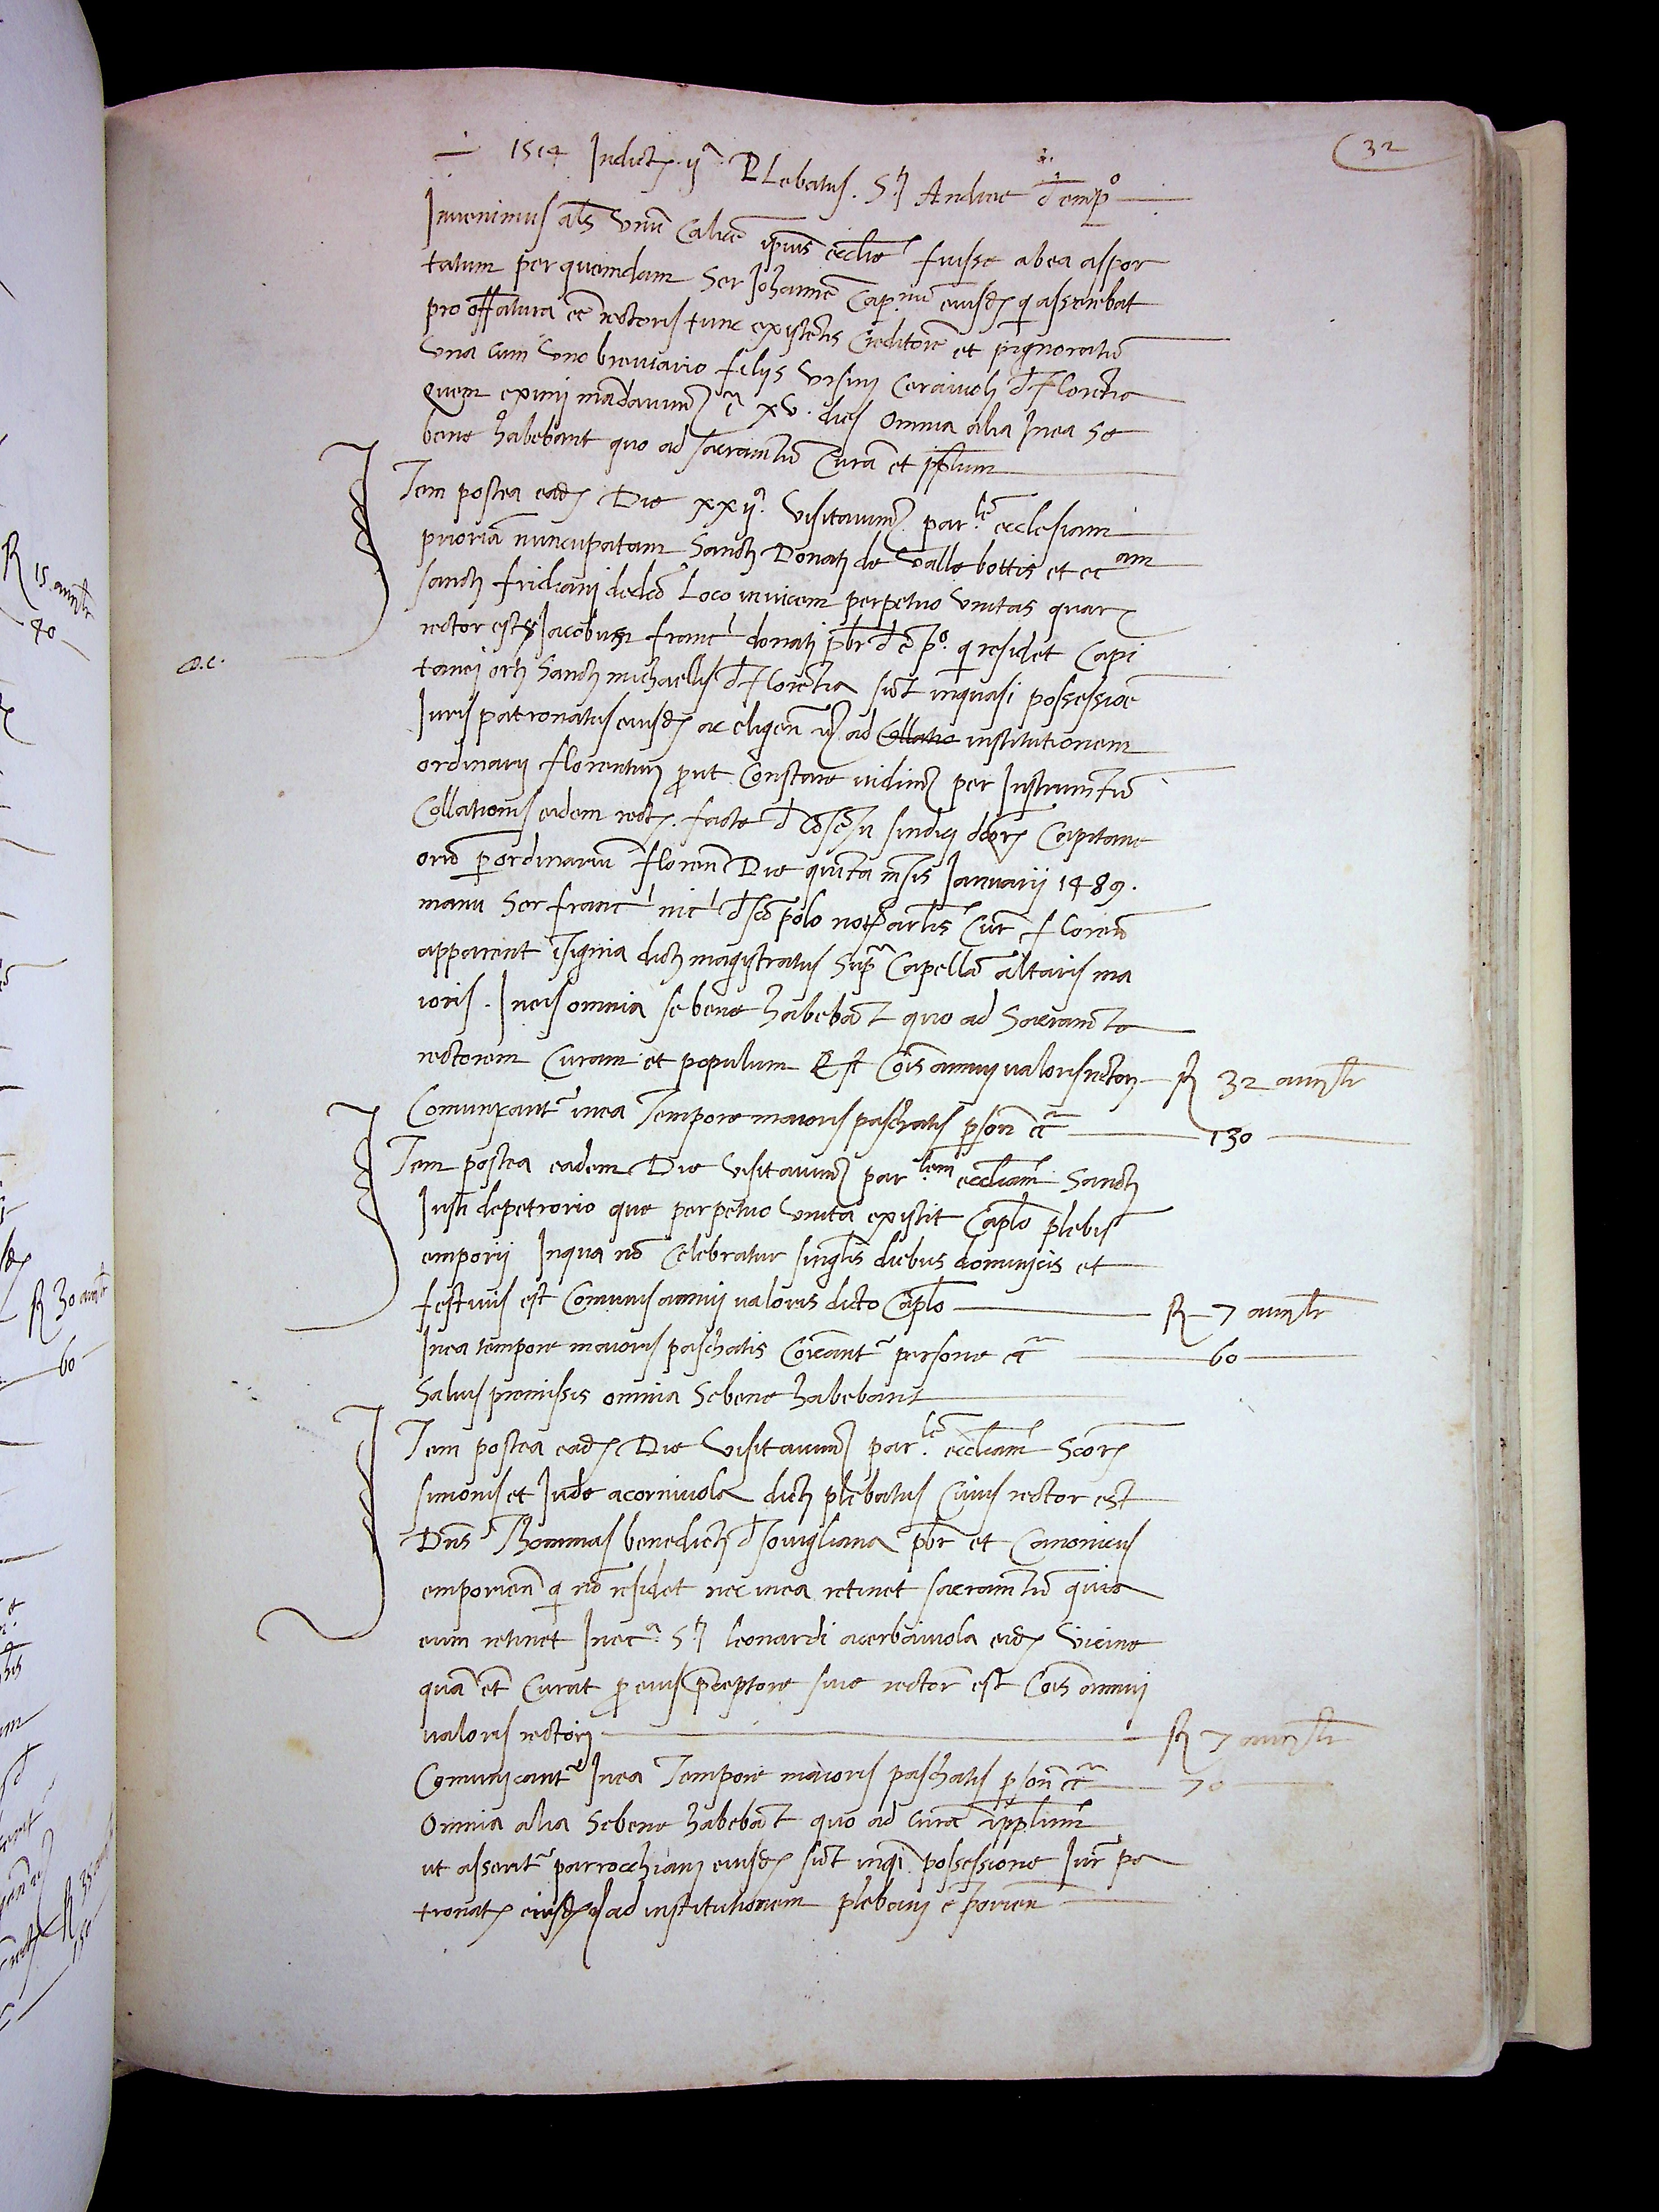 32
1514 Indict. ij.a PLebatus. S.ti Andree d emp.o
Invenimus als unu Calice ipius ecclie fuisse ab ea aspor
tatum per quemdam Ser Johanne Cap.nu eiusd qi asserebat
pro offatura ee rectoris tunc existetis Creditore et pignoratu
una cum uno breviario filijs Ursini Ceraiuoli d Florentia
Quem eximi madavim i xv. dies Omnia alia In ea Se
bene habebant quo ad sacramtu Cura et pplum
Item postea ead Die xxij.a Visitavim par.le ecclesiam
prioria nuncupatam Sancti Donati de Valle bottis et ec am
sancti fridiani de eod Loco invicem perpetuo Unitas quar
D.C.
rector est S Jacobus franc.i donati pbr d e p.o qi residet Capi
tanei orti Sancti michaellis d Florentia sut in quasi possessioe
Iuris patronatus eiusd ac eligen ad Collatio institutionem
ordinarij florentini put Constare vidim per Instrumtu
Collationis eidem rect. facte d cosesu sindici dcor Capitane
oru p ordinariu floren Die quita msis Januarij 1489.
manu Ser franc.i nic.i d sco polo not artis Cur floren
apparent isignia dicti magistratus Sup Capella altaris ma
ioris. In eis omnia se bene habebat quo ad Sacramto
rectorem Curam et populum Est Cois annuij valoris rectori — R 32 auri lr
Comunicant in ea Tempore maioris paschatis pson ca — 130
Item postea eadem Die Visitavim par.lem eccliam Sancti
Justi de petrorio que perpetuo Unita existit Caplo plebis
emporij In qua no Celebratur singlis diebus dominicis et
festivis est Comunis annuij valoris dicto Caplo — R 7 auri lr
In ea tempore maioris paschatis Coicant persone ca — 60
Salvis premissis omnia Se bene habebant
Item postea ead Die Visitavim par.le eccliam Scor
simonis et Jude a corniuola dicti plebatus Cuius rector est
Dns Thommas benedicti d sovigliana pbr et Canonicus
emporien qi no residet nec in ea retinet sacramtu quia
eum retinet In ec.a S.ti leonardi a cerbaiuola eid Vicine
qua et Curat p eius preceptore sive rectore est Cois annuij
valoris rectori — R 7 auri lr
Comunicant In ea Tempore maioris paschatis pson ca — 70
Omnia alia Se bene habebat quo ad cura ipplum
ut asserit parrocchiani eiusd sut in qi possessione Jur pa
tronat eiusd ad institutionem plebani e porien
R 15 auri lr
40
R 30 auri lr
60